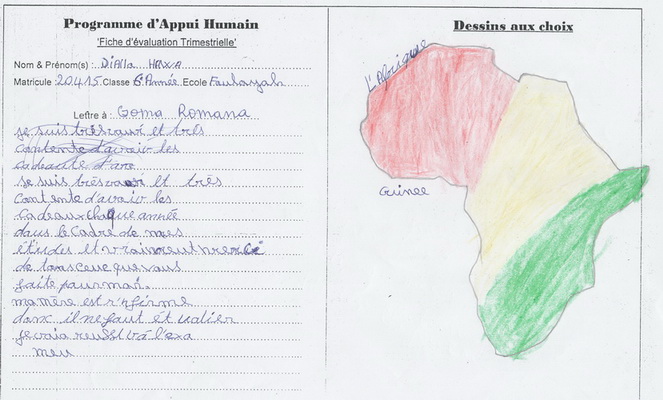 Programme d'Appui Humain
'Fiche d'évaluation Trimestrielle'
Nom & Prénom(s) : Diallo Hawa
Matricule : 20415 Classe 6e Année Ecole Faulayah
Lettre à : Goma Romana
je suis très et très
contente d'avoir les
je suis très et très
contente d'avoir les
Cadeaux chaque année
dans le Cadre de mes
études et vraiment merci
de tous ceuc que vous
faite pour moi.
ma mère est infirme
donc il ne faut ét udier
je vais reussir à l'exa
men
Dessins aux choix
L'Afrique
Guinee